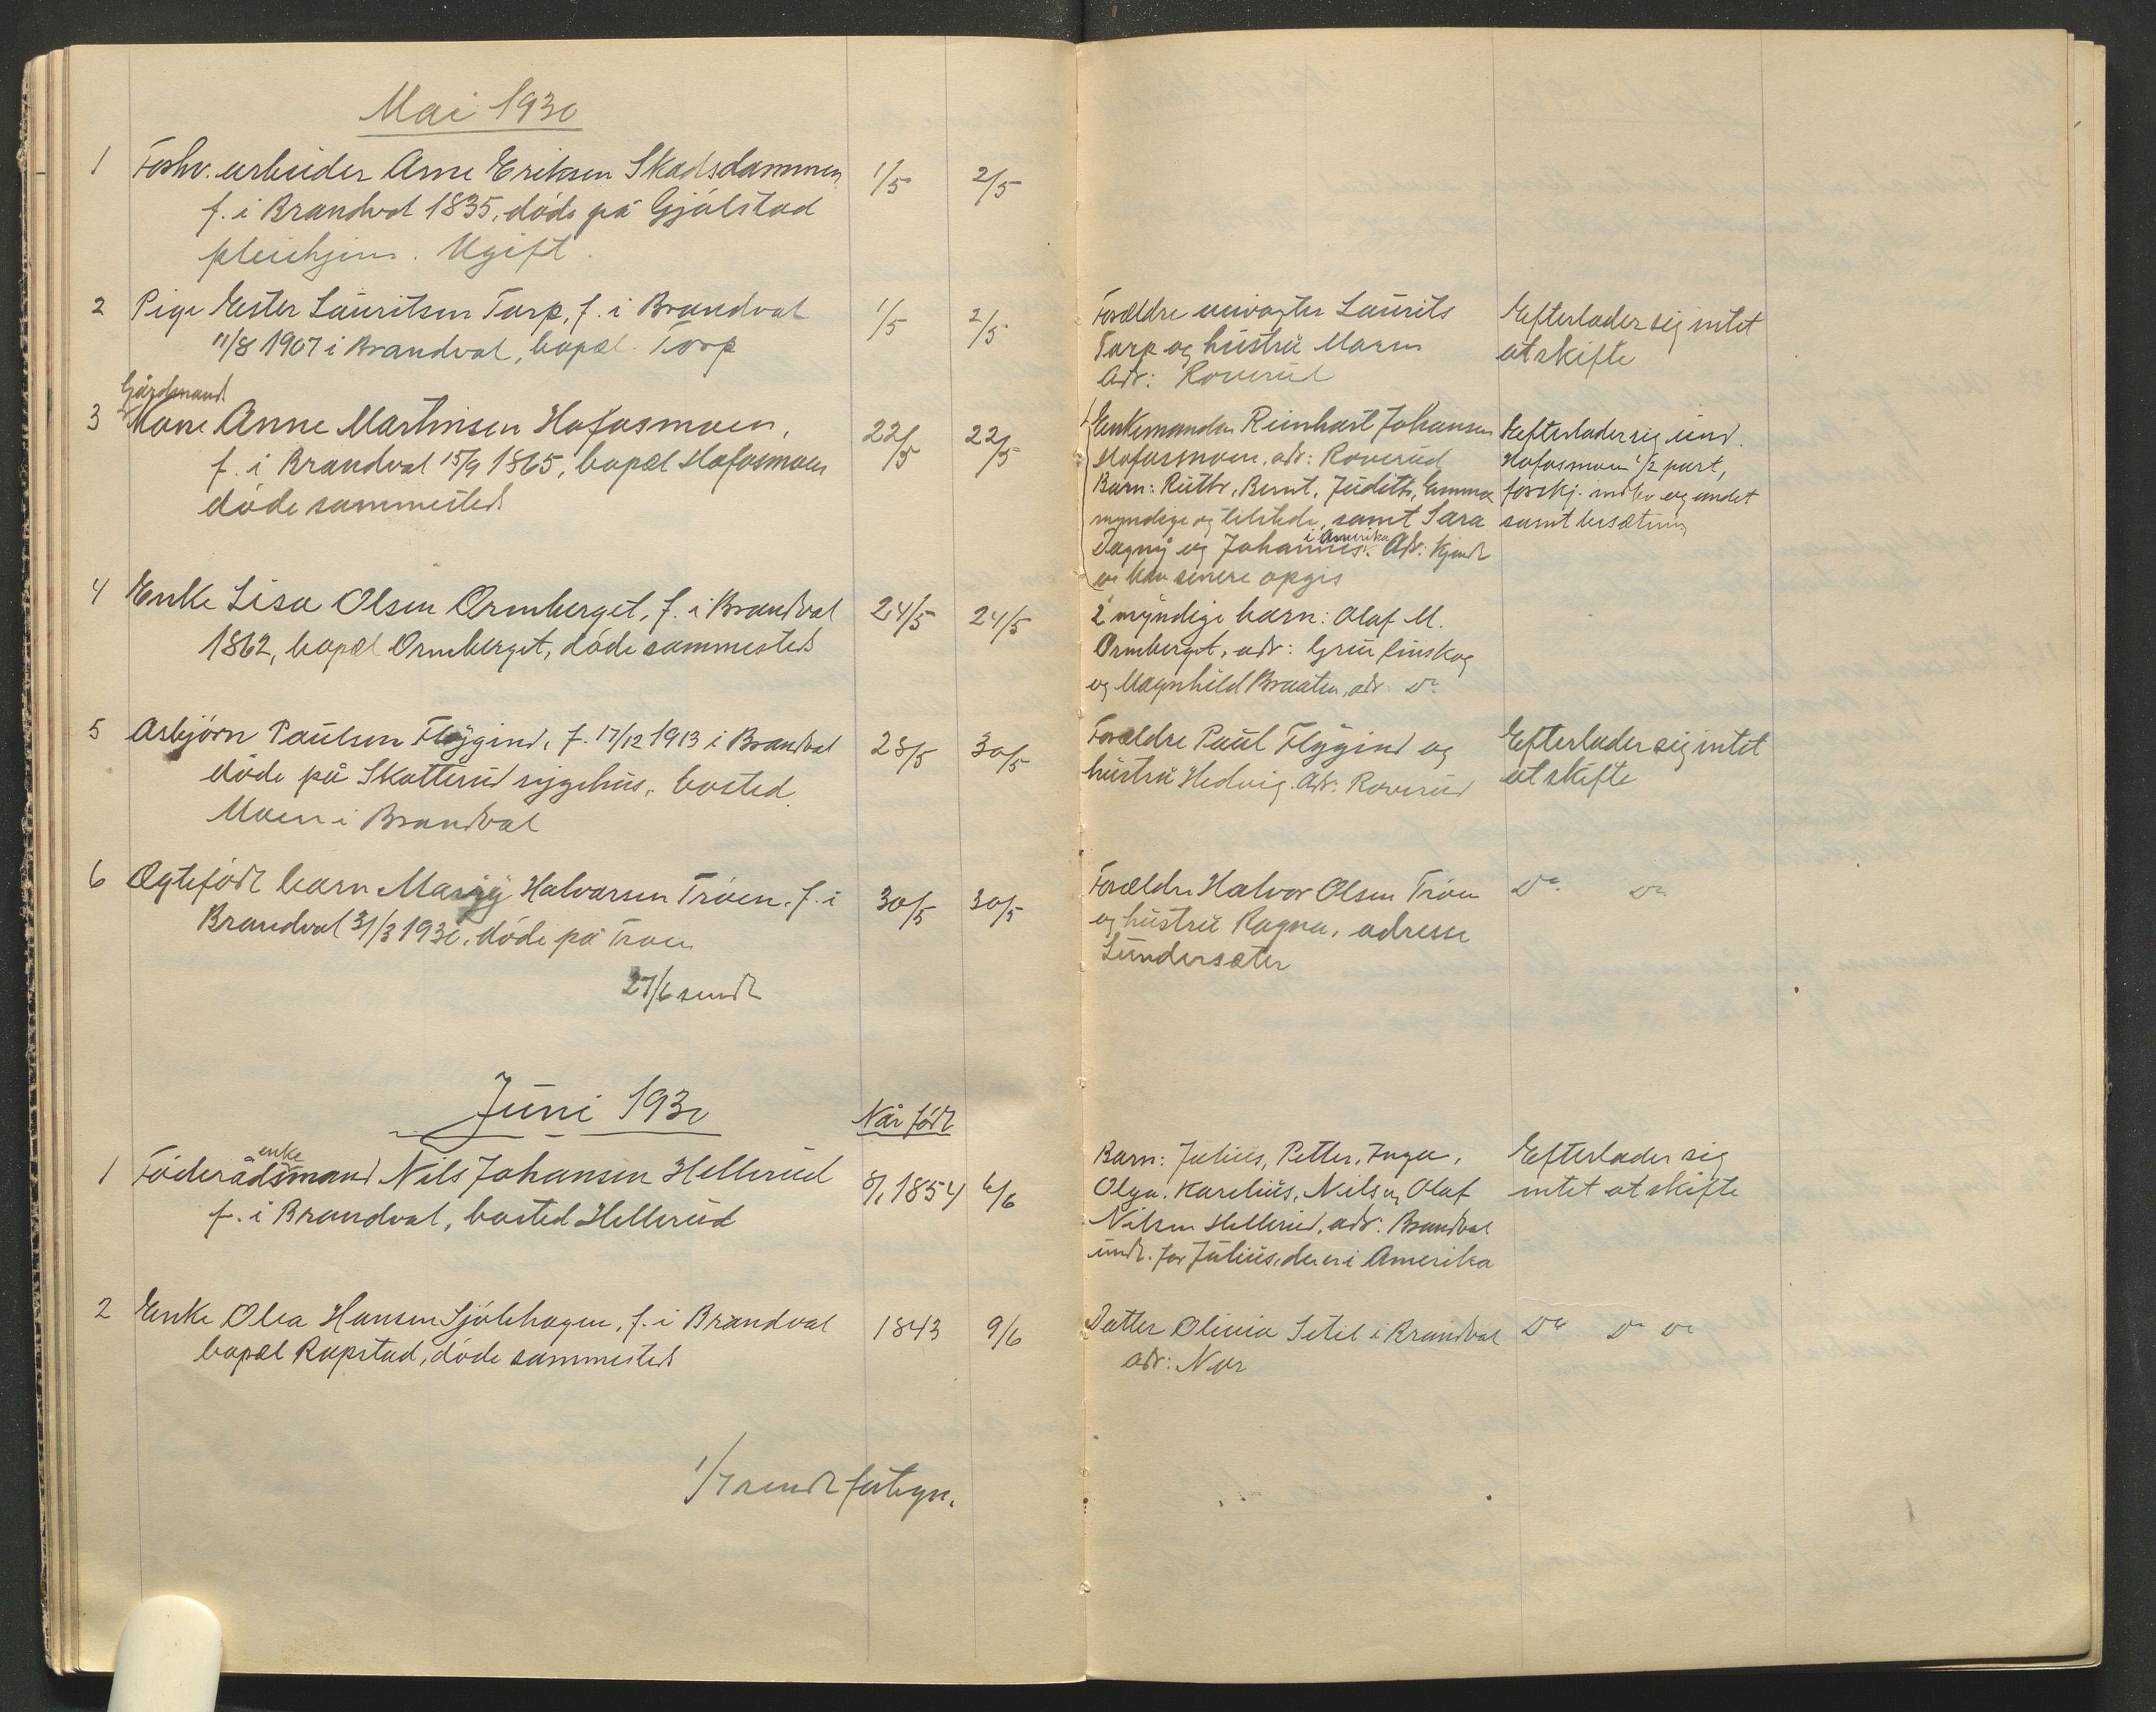 Mai 1930
1 Forhv. arbeider Arne Eriksen Skadsdammen 1/5 2/5
f. i Brandval 1835, døde på Gjølstad
pleiehjem. Ugift.
2 Pige Ester Lauritsen Tarp, f. i Brandval 1/5 2/5
11/8 1907 i Brandval, bopæl. Torp
Forældre Laurits
Tarp og hustru Maren
Adr: Roverud
Efterlader sig intet
at skifte
Gårdmand
3 Kone Anne Martinsen Hofosmoen, 22/5 22/5
f. i Brandval 15/9 1865, bopæl Hofosmoen
døde sammesteds
Enkemanden Reinhart Johansen
Hofosmoen, adr: Roverud
Barn: Ruth, Bernt, Judith, Emma
myndige og tilstede, samt Sara
Dagny og Johannes i Amerika. Adr: Kjendt
kan senere opgis
Efterlader sig eiend.
Hofosmoen 1/2 part,
forskj. indbo og andet
samt besætning
4 Enke Lisa Olsen Ormberget, f. i Brandval 24/5 24/5
1862, bopæl Ormberget, døde sammesteds
2 myndige barn: Olaf M.
Ormberget, adr: Grue finskog
og Magnhild Braaten, adr: Do
5 Asbjørn Paulsen Flygind, f. 17/12 1913 i Brandval 28/5 30/5
døde på Skotterud sygehus, bosted
Moen i Brandval
Forældre Paul Flygind og
hustru Hedvig. Adr: Roverud
Efterlader sig intet
at skifte
6 Ægtefødt barn Mary Halvorsen Trøen, f. i 30/5 30/5
Brandval 31/3 1930, døde på Trøen
Forældre Halvor Olsen Trøen
og hustru Ragna, adresse
Lundersæter
Do Do
27/6 sendt
Juni 1930 Når født
enke
1 Føderådsmand Nils Johansen Hellerud 8/1 1854 6/6
f. i Brandval, bosted Hellerud
Barn: Julius, Petter, Inga,
Olga, Karelius, Nils og Olaf
Nilsen Hellerud, adr. Brandval
undt. for Julius, der er i Amerika
Efterlader sig
intet at skifte
2 Enke Olea Hansen Sjølihagen, f. i Brandval 1843 9/6
bopæl Rapstad, døde sammesteds
Datter Olivia Setil i Brandval
adr: Nor
Do Do Do
1/7 sendt